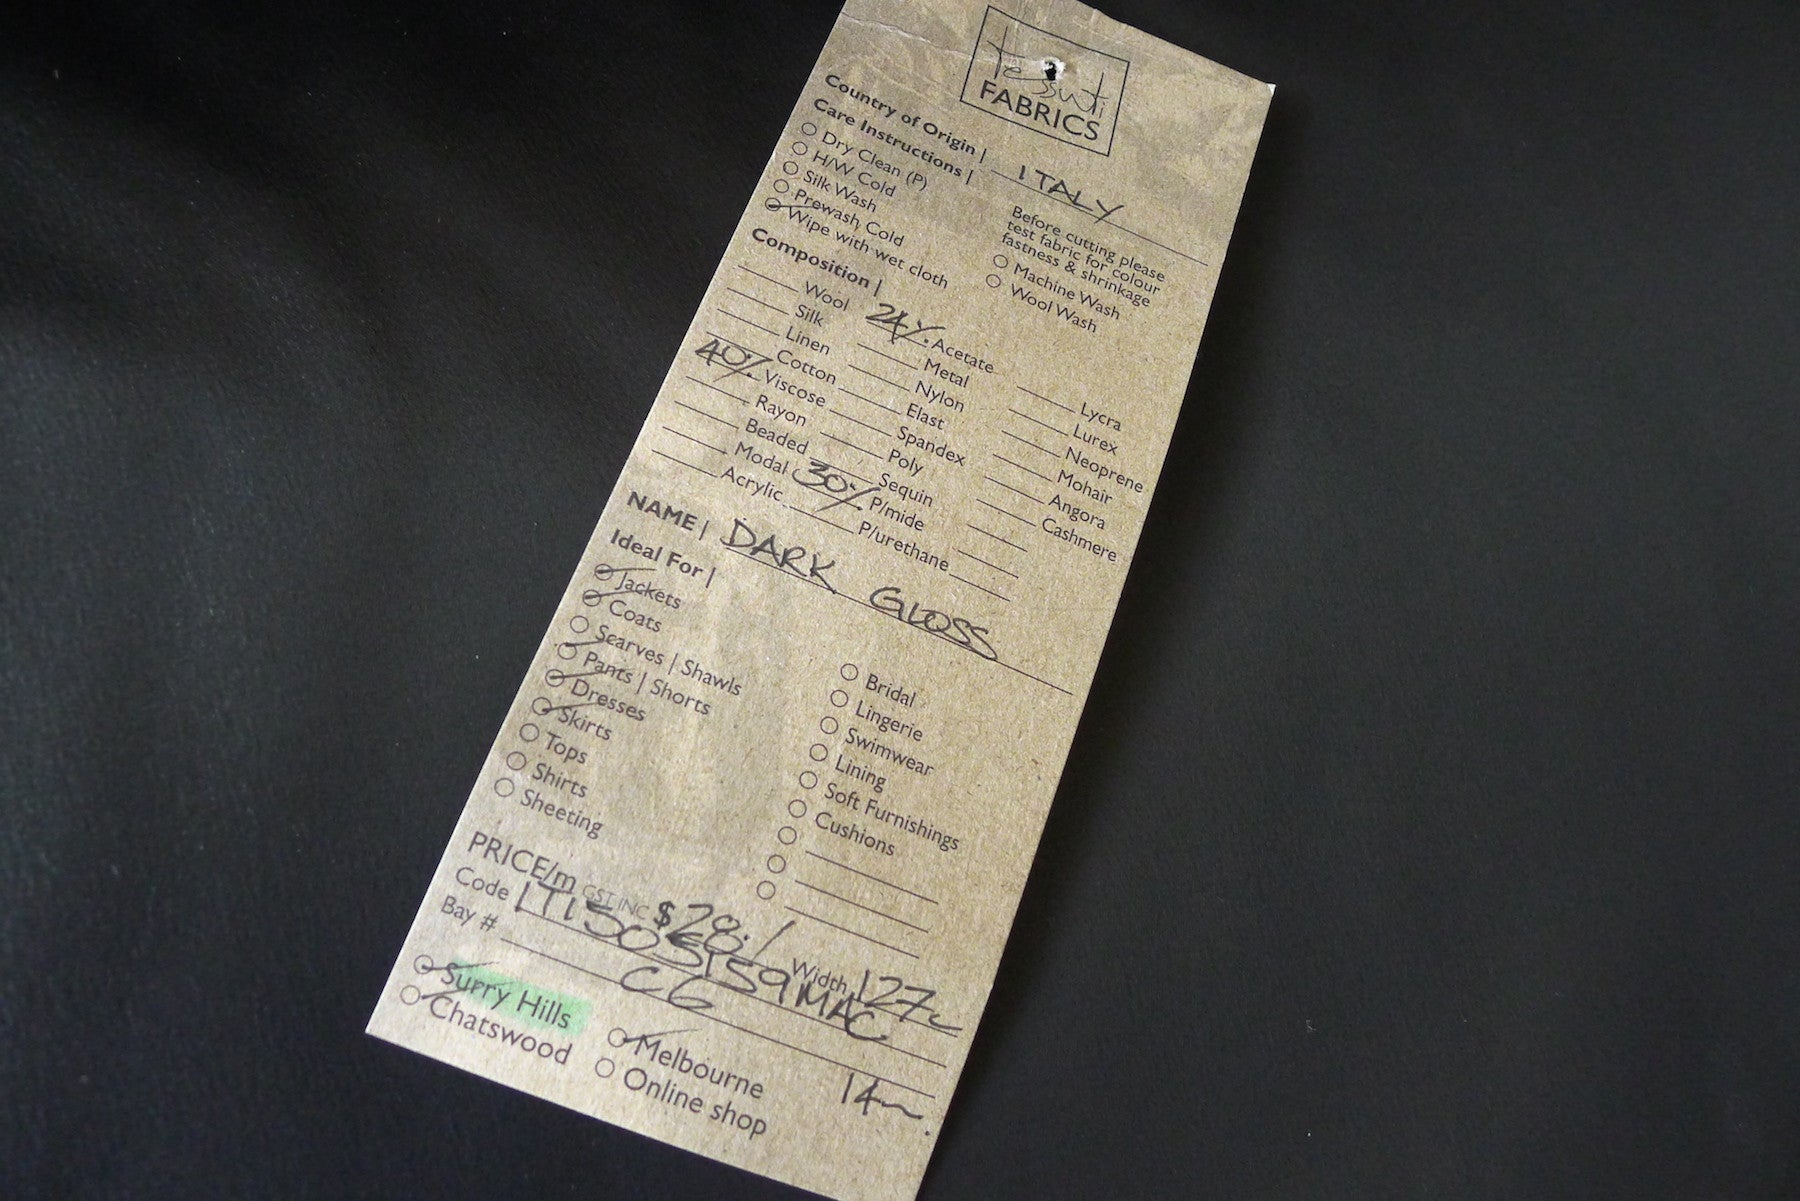 tessuti
FABRICS
Country of Origin | ITALY
Care Instructions |
Dry Clean (P)
H/W Cold
Silk Wash
Prewash Cold
Wipe with wet cloth
Before cutting please
test fabric for colour
fastness & shrinkage
Machine Wash
Wool Wash
Composition |
Wool
Silk
Linen
Cotton
40% Viscose
Rayon
Beaded
Modal
Acrylic
24% Acetate
Metal
Nylon
Elast
Spandex
Poly
Sequin
30% P/mide
P/urethane
Lycra
Lurex
Neoprene
Mohair
Angora
Cashmere
NAME | DARK GLOSS
Ideal For |
Jackets
Coats
Scarves | Shawls
Pants | Shorts
Dresses
Skirts
Tops
Shirts
Sheeting
Bridal
Lingerie
Swimwear
Lining
Soft Furnishings
Cushions
PRICE/m GST INC $ Width 127c
Code
Bay # C6
Surry Hills
Chatswood
Melbourne
Online shop
14m